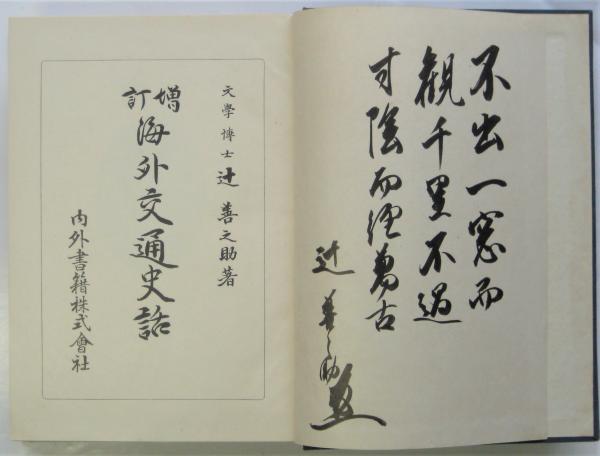 不出一窓而
観千里不過
寸陰而経萬古
辻善之助
文學博士辻善之助著
増訂海外交通史話
内外書籍株式會社